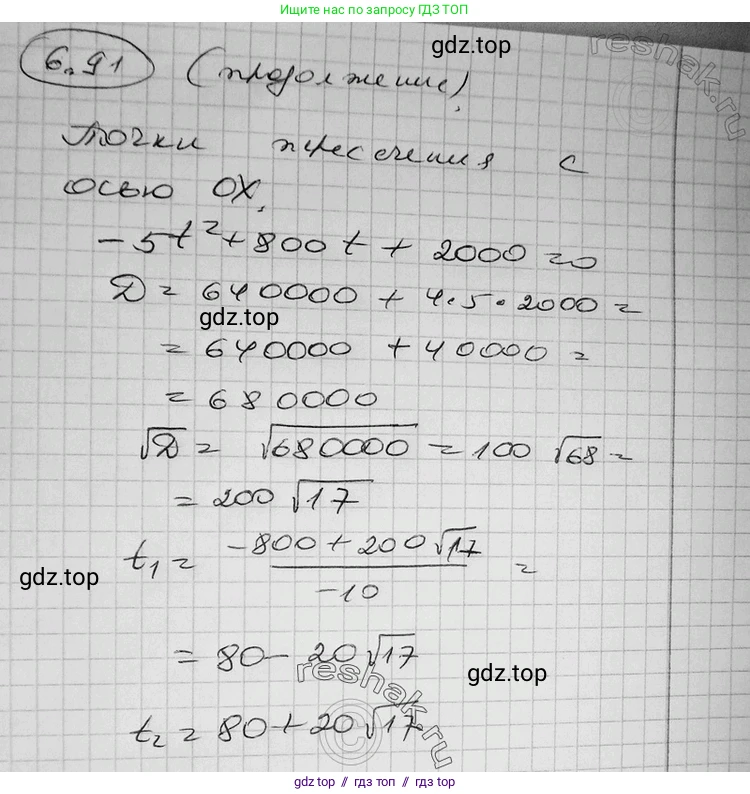 Ищите нас по запросу ГДЗ ТОП
6.91 (продолжение)
gdz.top
reshak.ru
Точки пересечения с
осью OX,
-5t² + 800t + 2000 = 0
D = 640000 + 4·5·2000 =
gdz.top
= 640000 + 40000 =
= 680000
√D = √680000 = 100 √68 =
= 200 √17
t₁ = (-800 + 200√17)/(-10) =
gdz.top
= 80 - 20√17
gdz.top
reshak.ru
t₂ = 80 + 20√17
gdz.top // гдз топ // gdz top